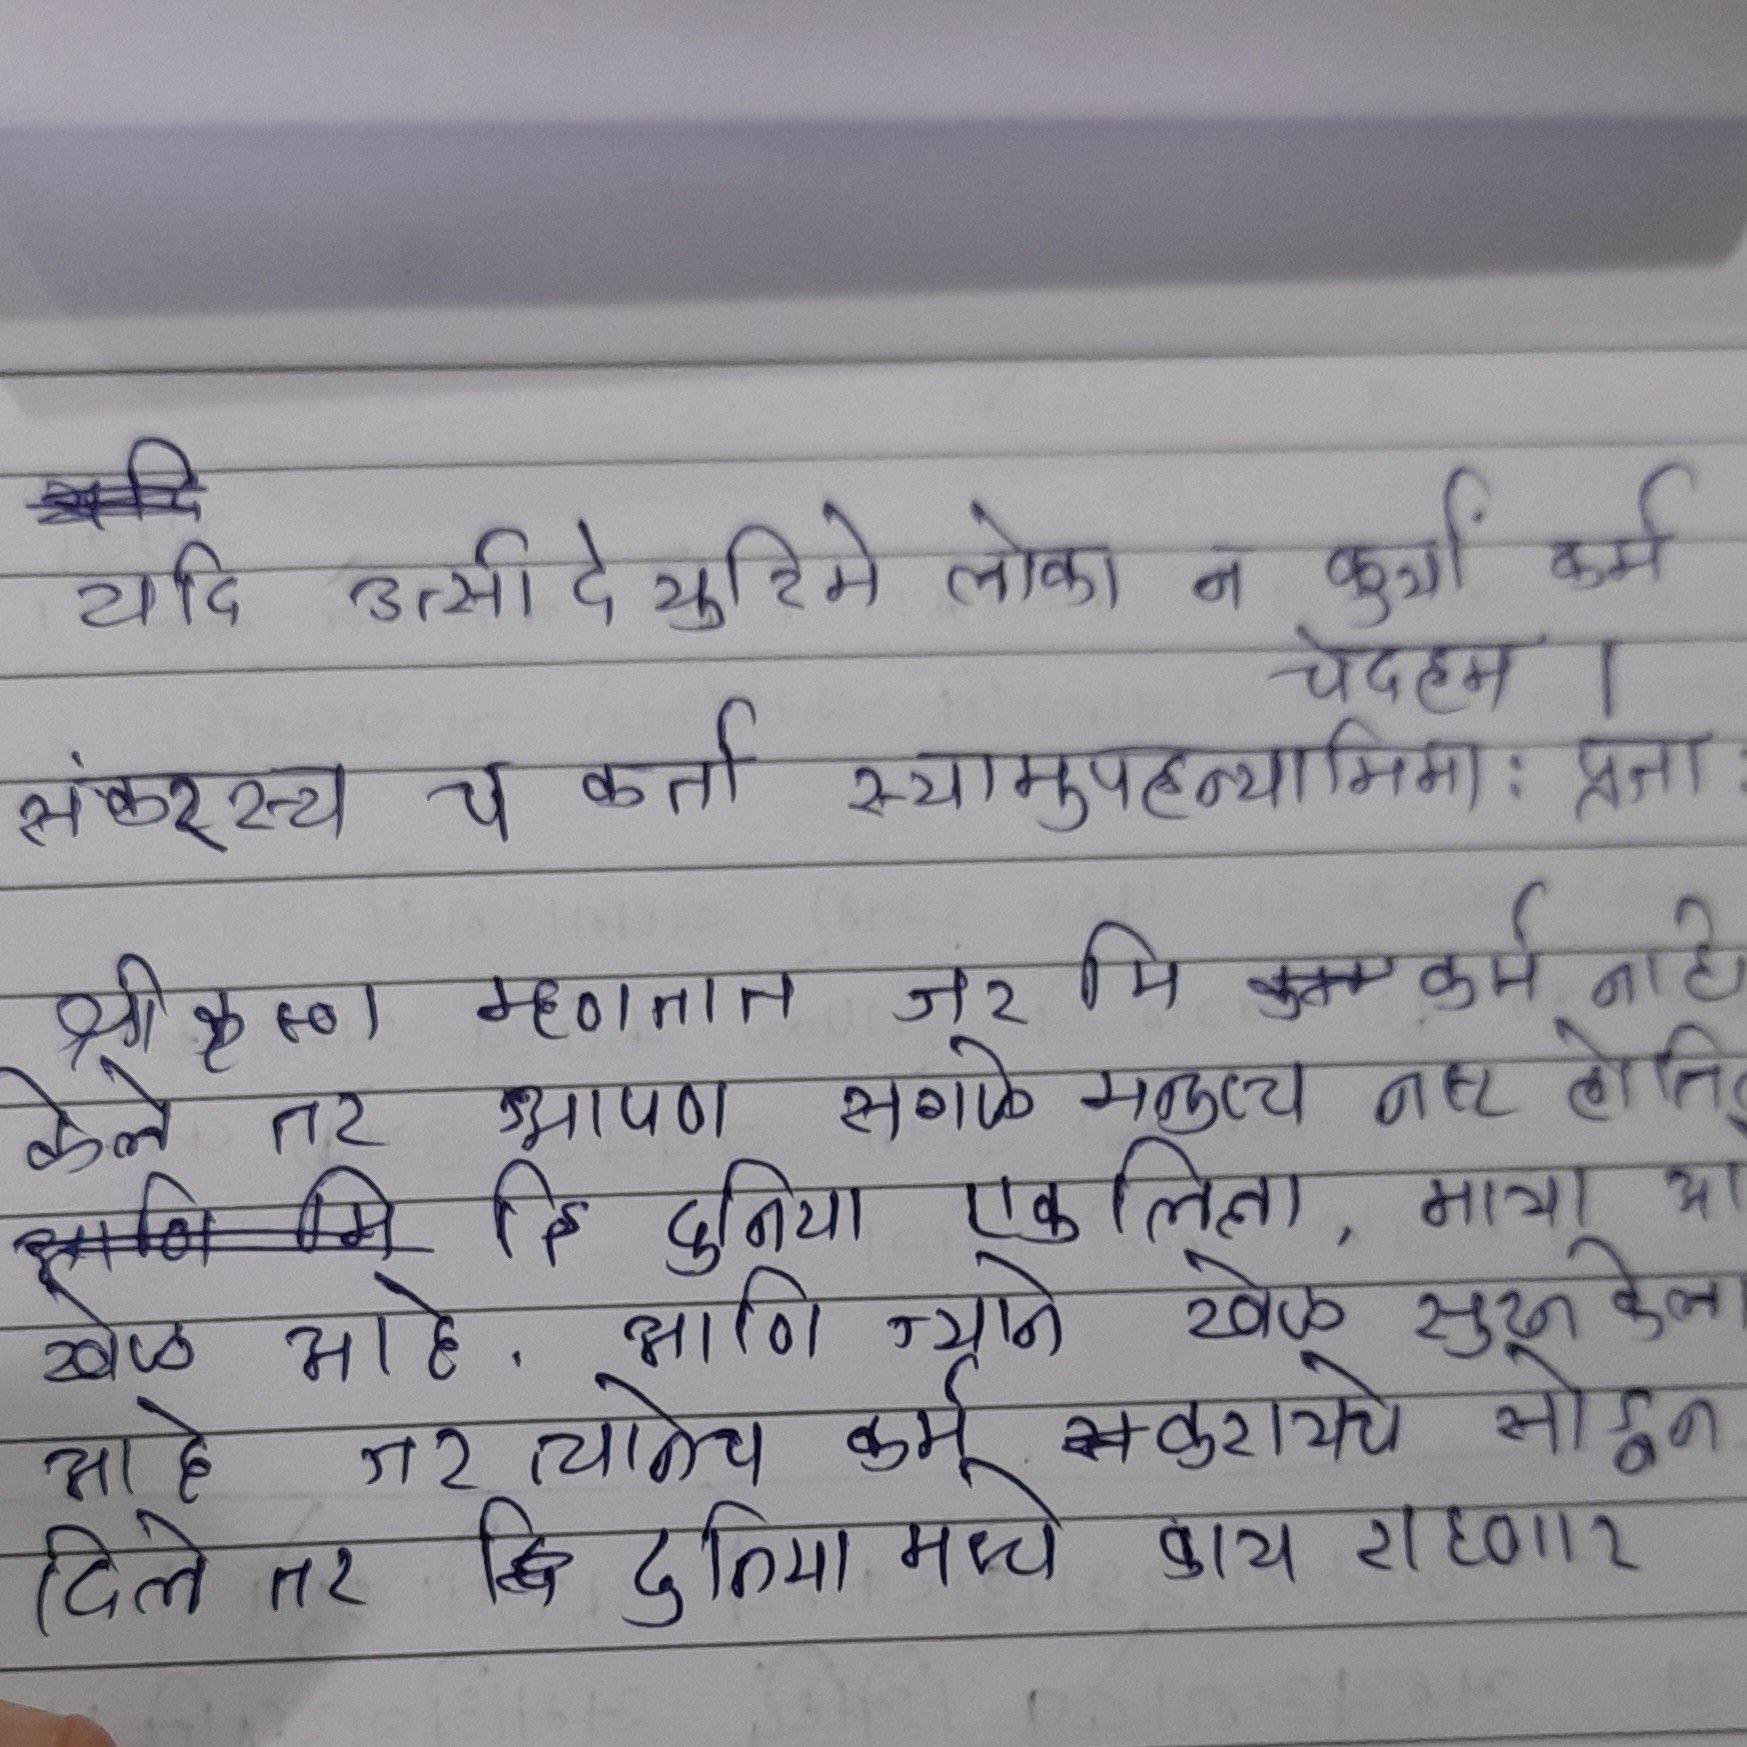 यदि उत्सीदेयुरिमे लोका न कुर्यां कर्म
चेदहम ।
संकरस्य च कर्ता स्यामुपहन्यामिमा: प्रजा:
श्री कृष्ण म्हणतात जर मि कर्म नाही
केले तर आपण सगळे मनुष्य नष्ट
हि दुनिया एक लिला, माया
खेळ आहे. आणि ज्याने खेळ सुरू केला
आहे जर त्यानेच कर्म करायचे सोडून
दिले तर दुनिया मध्ये काय राहणार